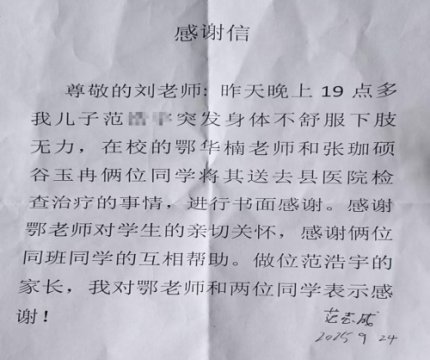 感谢信
尊敬的刘老师: 昨天晚上 19 点多
我儿子范 突发身体不舒服下肢
无力，在校的鄂华楠老师和张珈硕
谷玉冉俩位同学将其送去县医院检
查治疗的事情，进行书面感谢。感谢
鄂老师对学生的亲切关怀，感谢俩位
同班同学的互相帮助。做位范浩宇的
家长，我对鄂老师和两位同学表示感
谢！
2025 9 24